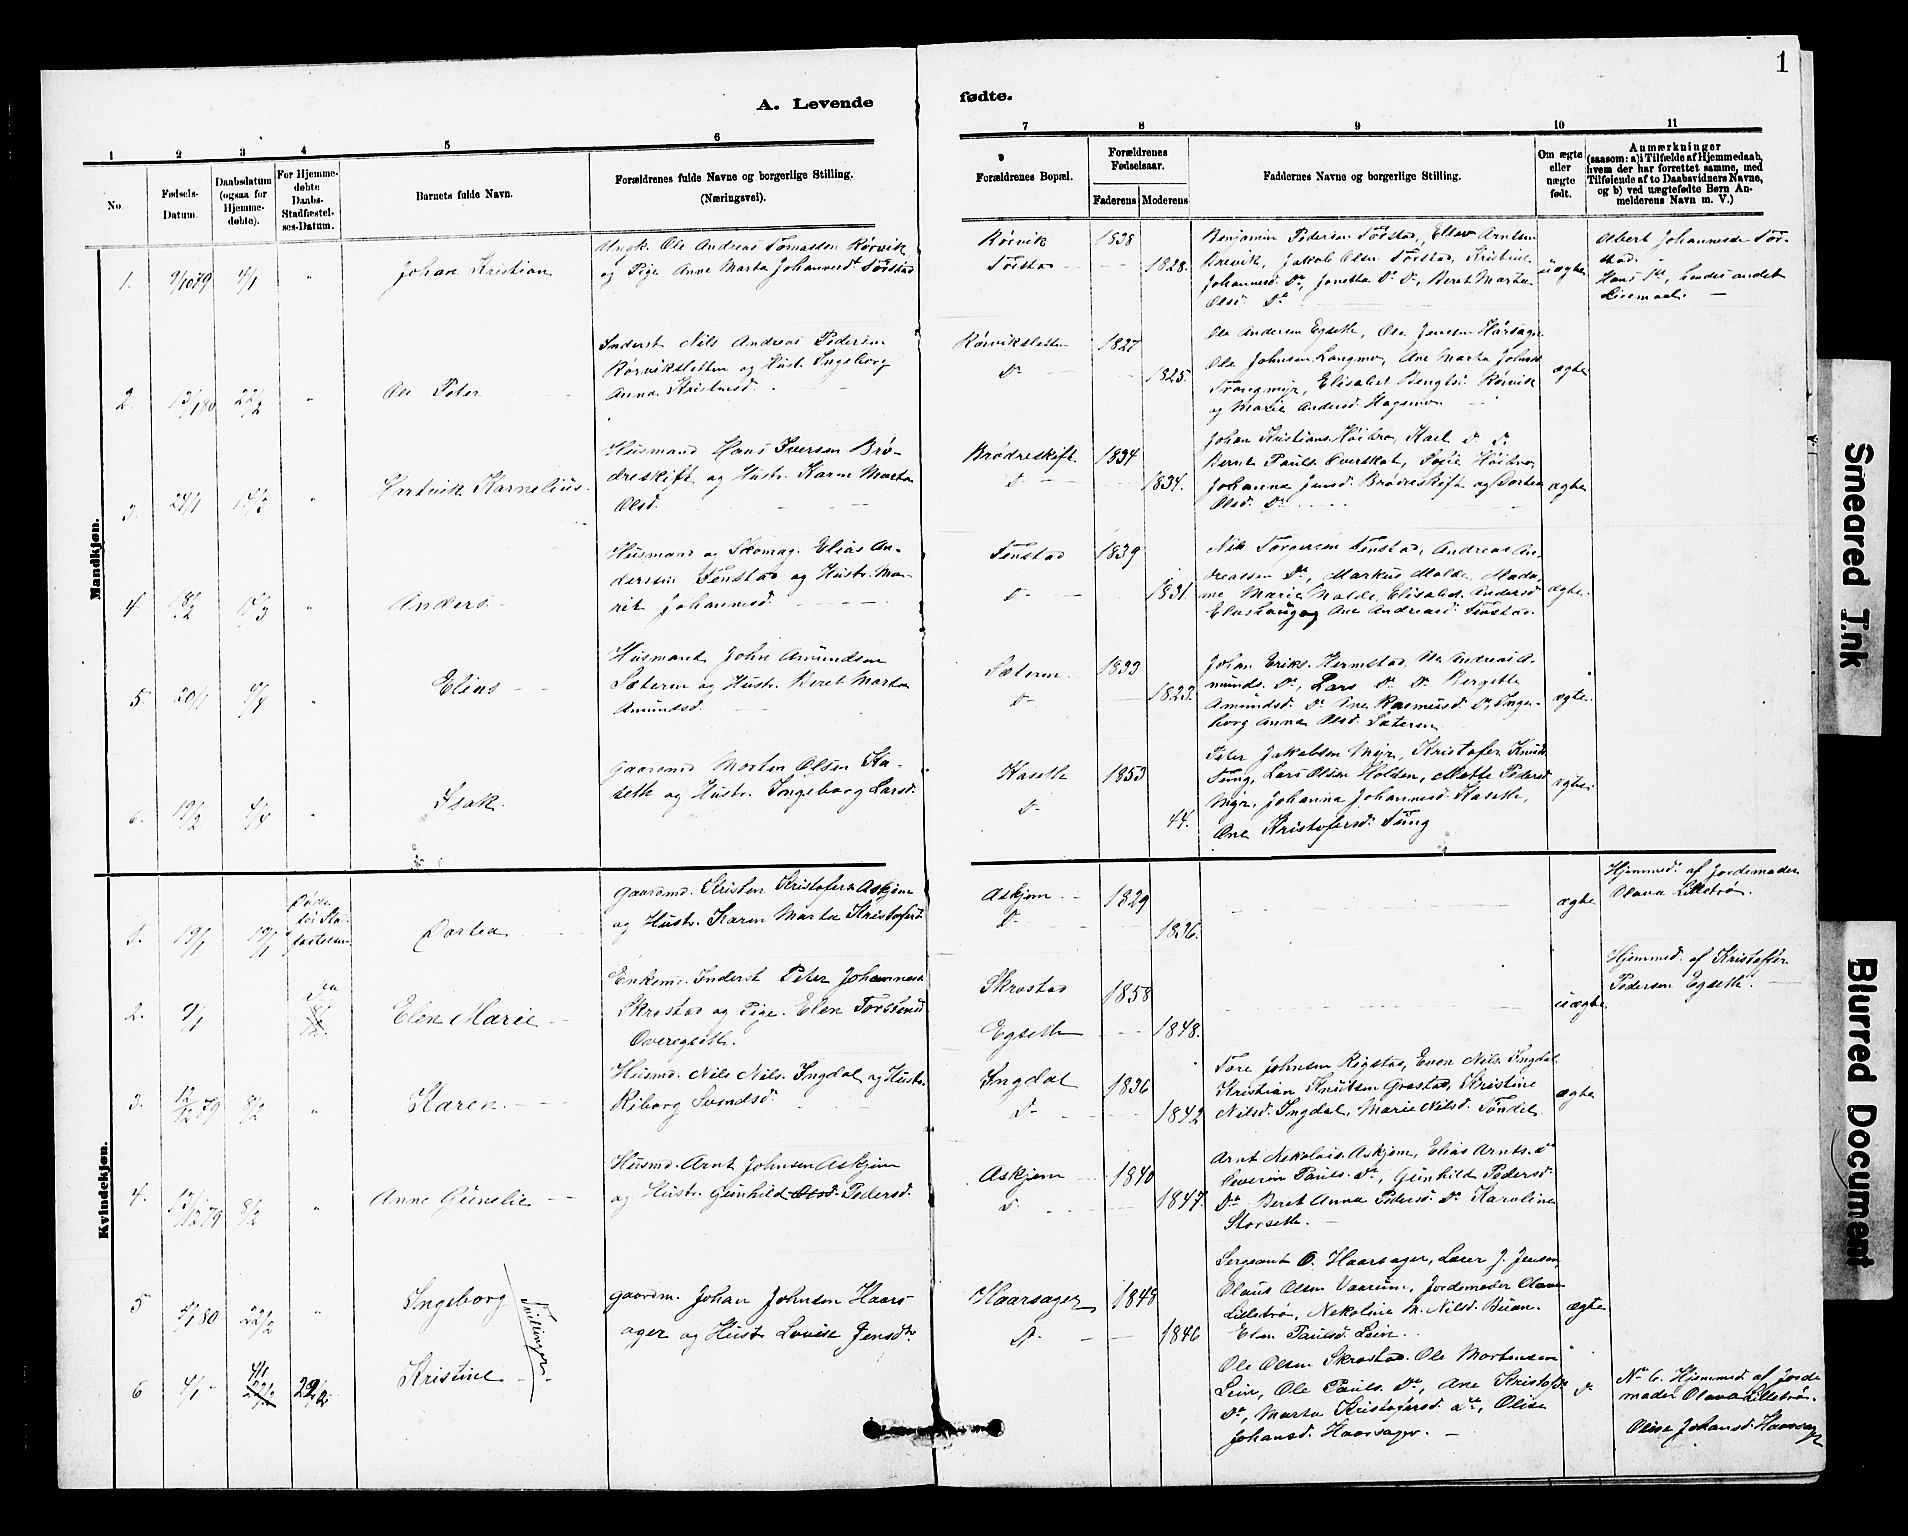 1
A. Levende fødte.
1 2 3 4 5 6 7 8 9 10 11
No.
Fødsels-Datum.
Daabsdatum (ogsaa for Hjemme-døbte).
For Hjemme-døbte Daabs-Stadfæstel-ses-Datum.
Barnets fulde Navn.
Forældrenes fulde Navne og borgerlige Stilling.
(Næringsvei).
Forældrenes Bopæl.
Forældrenes Fødselsaar.
Faderens Moderens
Faddernes Navne og borgerlige Stilling.
Om ægte eller uægte født.
Anmærkninger
(saasom: a) i Tilfælde af Hjemmedaab,
hvem der har forrettet samme, med
Tilføiende af to Daabsvidners Navne,
og b) ved uægtefødte Børn An-
melderens Navn m. V.)
Mandkjøn.
1. 9/10 79 4/1 " Johan Kristian
Ungk. Ole Andreas Tomassen Rørvik
og Pige Anne Marta Johannesd. Torstad
Rørvik 1838
Torstad 1828.
Benjamin Pedersen Torstad, Ellev Arntsen
Brevik, Jakob Olsen Torstad, Kristine
Johannesd. Do, Jonetta Do Do, Beret Marta
Olsd. Do
uægte
Albert Johannesen Tor-
stad.
Hans Do, hendes andet
Leiermaal. —
2. 13/1 80 22/2 " Ole Peter
Inderst Nils Andreas Pedersen
Rørviksletten og Hust. Ingeborg
Anna Kristensd.
Rørviksletten 1827
Do 1825.
Ole Andersen Egseth, Ole Jensen Harsager
Ole Johnsen Langmo, Ane Marta Johnsd.
Trongmyr, Elisabet Bengtsd. Rørvik
og Marie Andersd. Hagemo
ægte
3. 24/1 14/3 " Hartvik Karnelius.
Husmand Hans Iversen Brø-
dreskift og Hustr. Karen Marta
Olsd.
Brødreskift 1834
Do 1834.
Johan Kristians. Høibro, Karl D. D.
Bernt Pauls. Overskot, Sofie Høibro,
Johanna Jensd. Brødreskift og Dortea
Olsd. Do
ægte
4. 18/2 14/3 " Anders
Husmand og Skomag. Elias An-
derssen Tenstad og Hustr. Ma-
rit Johannesd.
Tenstad 1839
Do 1831.
Nils Torgersen Tenstad, Andreas An-
dreassen Do, Markus Molde, Mada-
me Marie Molde, Elisabet Andersd.
Elvshaug og Ane Andreasd. Tenstad.
ægte.
5. 20/1 4/4 " Elias
Husmand John Amundsen
Sæteren og Hustr. Beret Marta
Amundsd.
Sæteren 1833
Do 1823.
Johan Eriks. Hermstad, Ole Andreas A-
munds. Do, Lars Do Do Bergette
Amundsd. Do Ane Rasmusd. Do, Inge-
borg Anna Olsd. Sæteren
ægte.
6. 19/2 4/4 " Isak.
Gaardmd. Morten Olsen Ka-
seth og Hustr. Ingeborg Larsd.
Kaseth 1853
Do 44.
Peter Jakobsen Myr, Kristofer Knuds.
Tung, Lars Olsen Holden, Mette Pedersd.
Myr, Johanna Johannesd. Kaseth,
Ane Kristofersd. Tung
ægte
Kvindekjøn.
1. 19/1 19/1 Døde før Sta- fæstelsen Dortea
Gaardmd. Kristen Kristofersn. Askjem
og Hustr. Karen Marta Kristofersd.
Askjem 1829
Do 1836.
ægte
Hjemmed. af Jordemoder
Olava Lillebrø.
2. 9/1 Elen Marie
Enkemd. Inderst Peter Johannesen
Skrostad og Pige. Elen Torstensd.
Overegseth.
Skrostad 1858
Egseth 1848.
uægte
Hjemmed. af Kristoffer
Pedersen Egseth.
3. 12/12 79 8/2 " Karen.
Husmd. Nils Nils. Ingdal og Hustr.
Kiborg Svendsd.
Ingdal 1836
Do 1842
Tore Johnsen Rigstad, Even Nils. Ingdal
Kristian Knutsen Grostad, Kristine
Nilsd. Ingdal, Marie Nilsd. Tøndel
ægte
4. 13/12 79 8/2 " Anne Gunelie
Husmd. Arnt Johnsen Askjem
og Hustr. Gunhild Olsd. Pedersd.
Askjem 1840
D. 1847.
Arnt Nekolais. Askjem, Elias Arnts. Do
Severin Pauls. Do, Gunhild Pedersd.
Do Beret Anna Pedersd. Do Karoline
Storseth.
5 4/1 80 22/2 " Ingeborg
Tvillinger
Gaardm. Johan Johnsen Haars-
ager og Hust Lovise Jensdr.
Haarsager 1848
Do 1846
Sergeant O. Haarsager, Lærer J. Jensen,
Olaus Olsen Vaarum, Jordemoder Olava
Lillebrø, Nekoline M. Nilsd. Buan.
Elen Paulsd. Lein.
ægte
6 4/1 4/1 22/2 22/2 Kristine
Ole Olsen Skrostad. Ole Mortensen
Lein, Ole Pauls. Do, Ane Kristofsd.
Do, Marta Kristofersd. do, Olise
Johansd. Haarsager. —
Do
No 6. Hjemmed. af Jorde
moder Olava Lillebrø.
Olise Johansd. Haarsager
Smeared Ink
Blurred Document